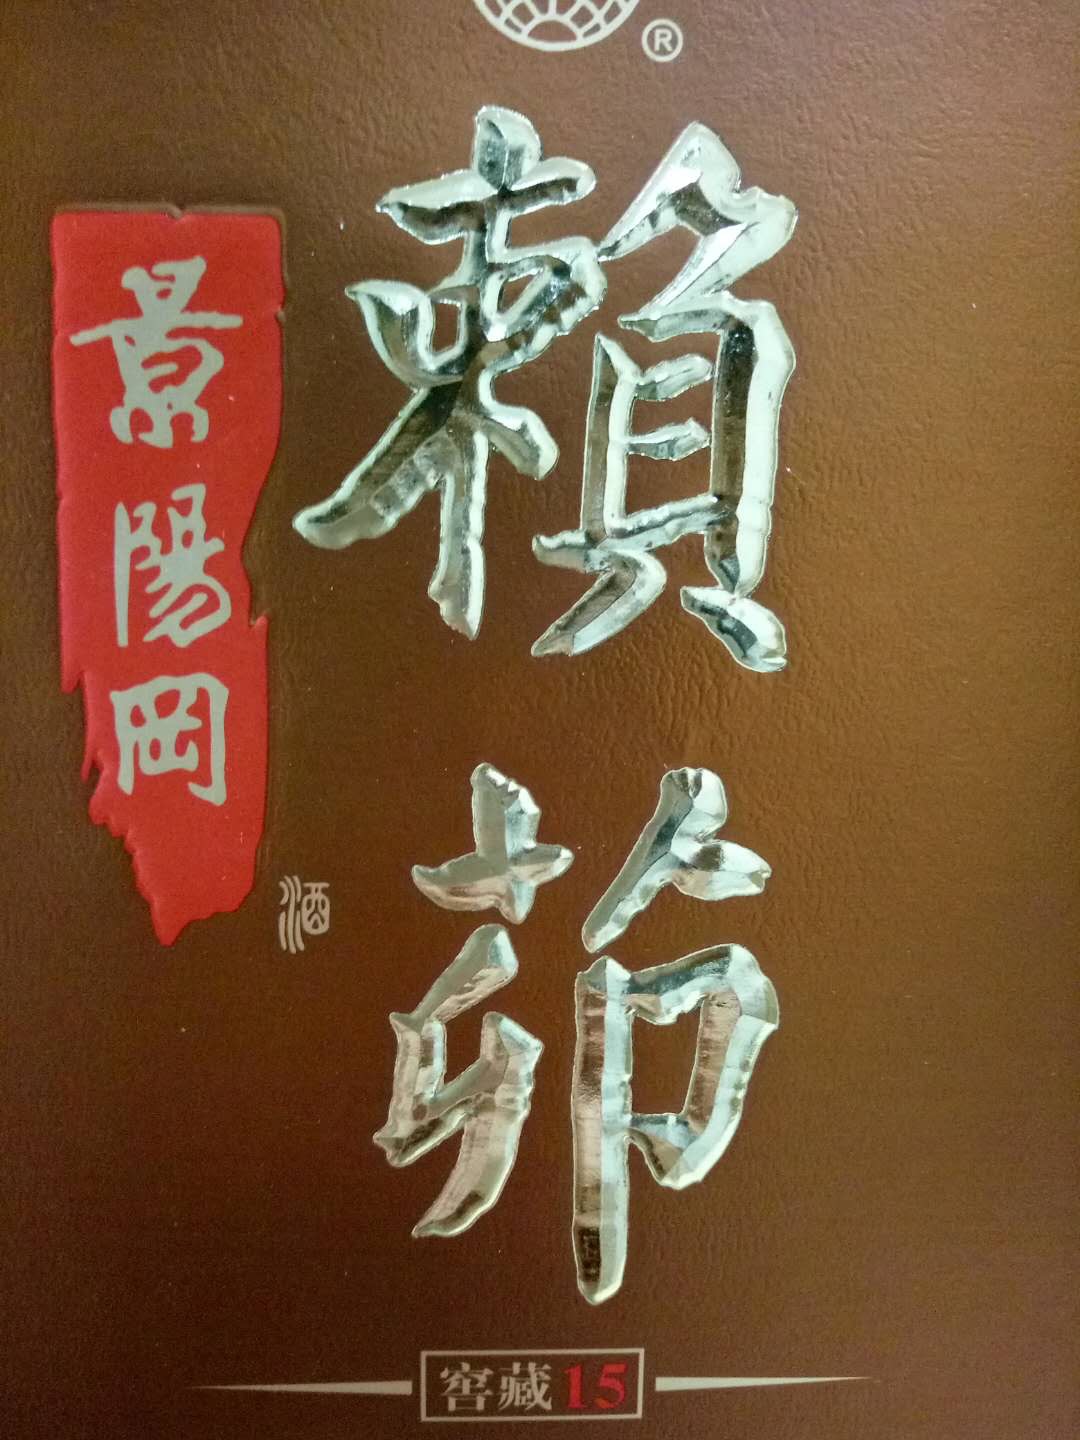 ®
賴茆
景陽岡
酒
窖藏15